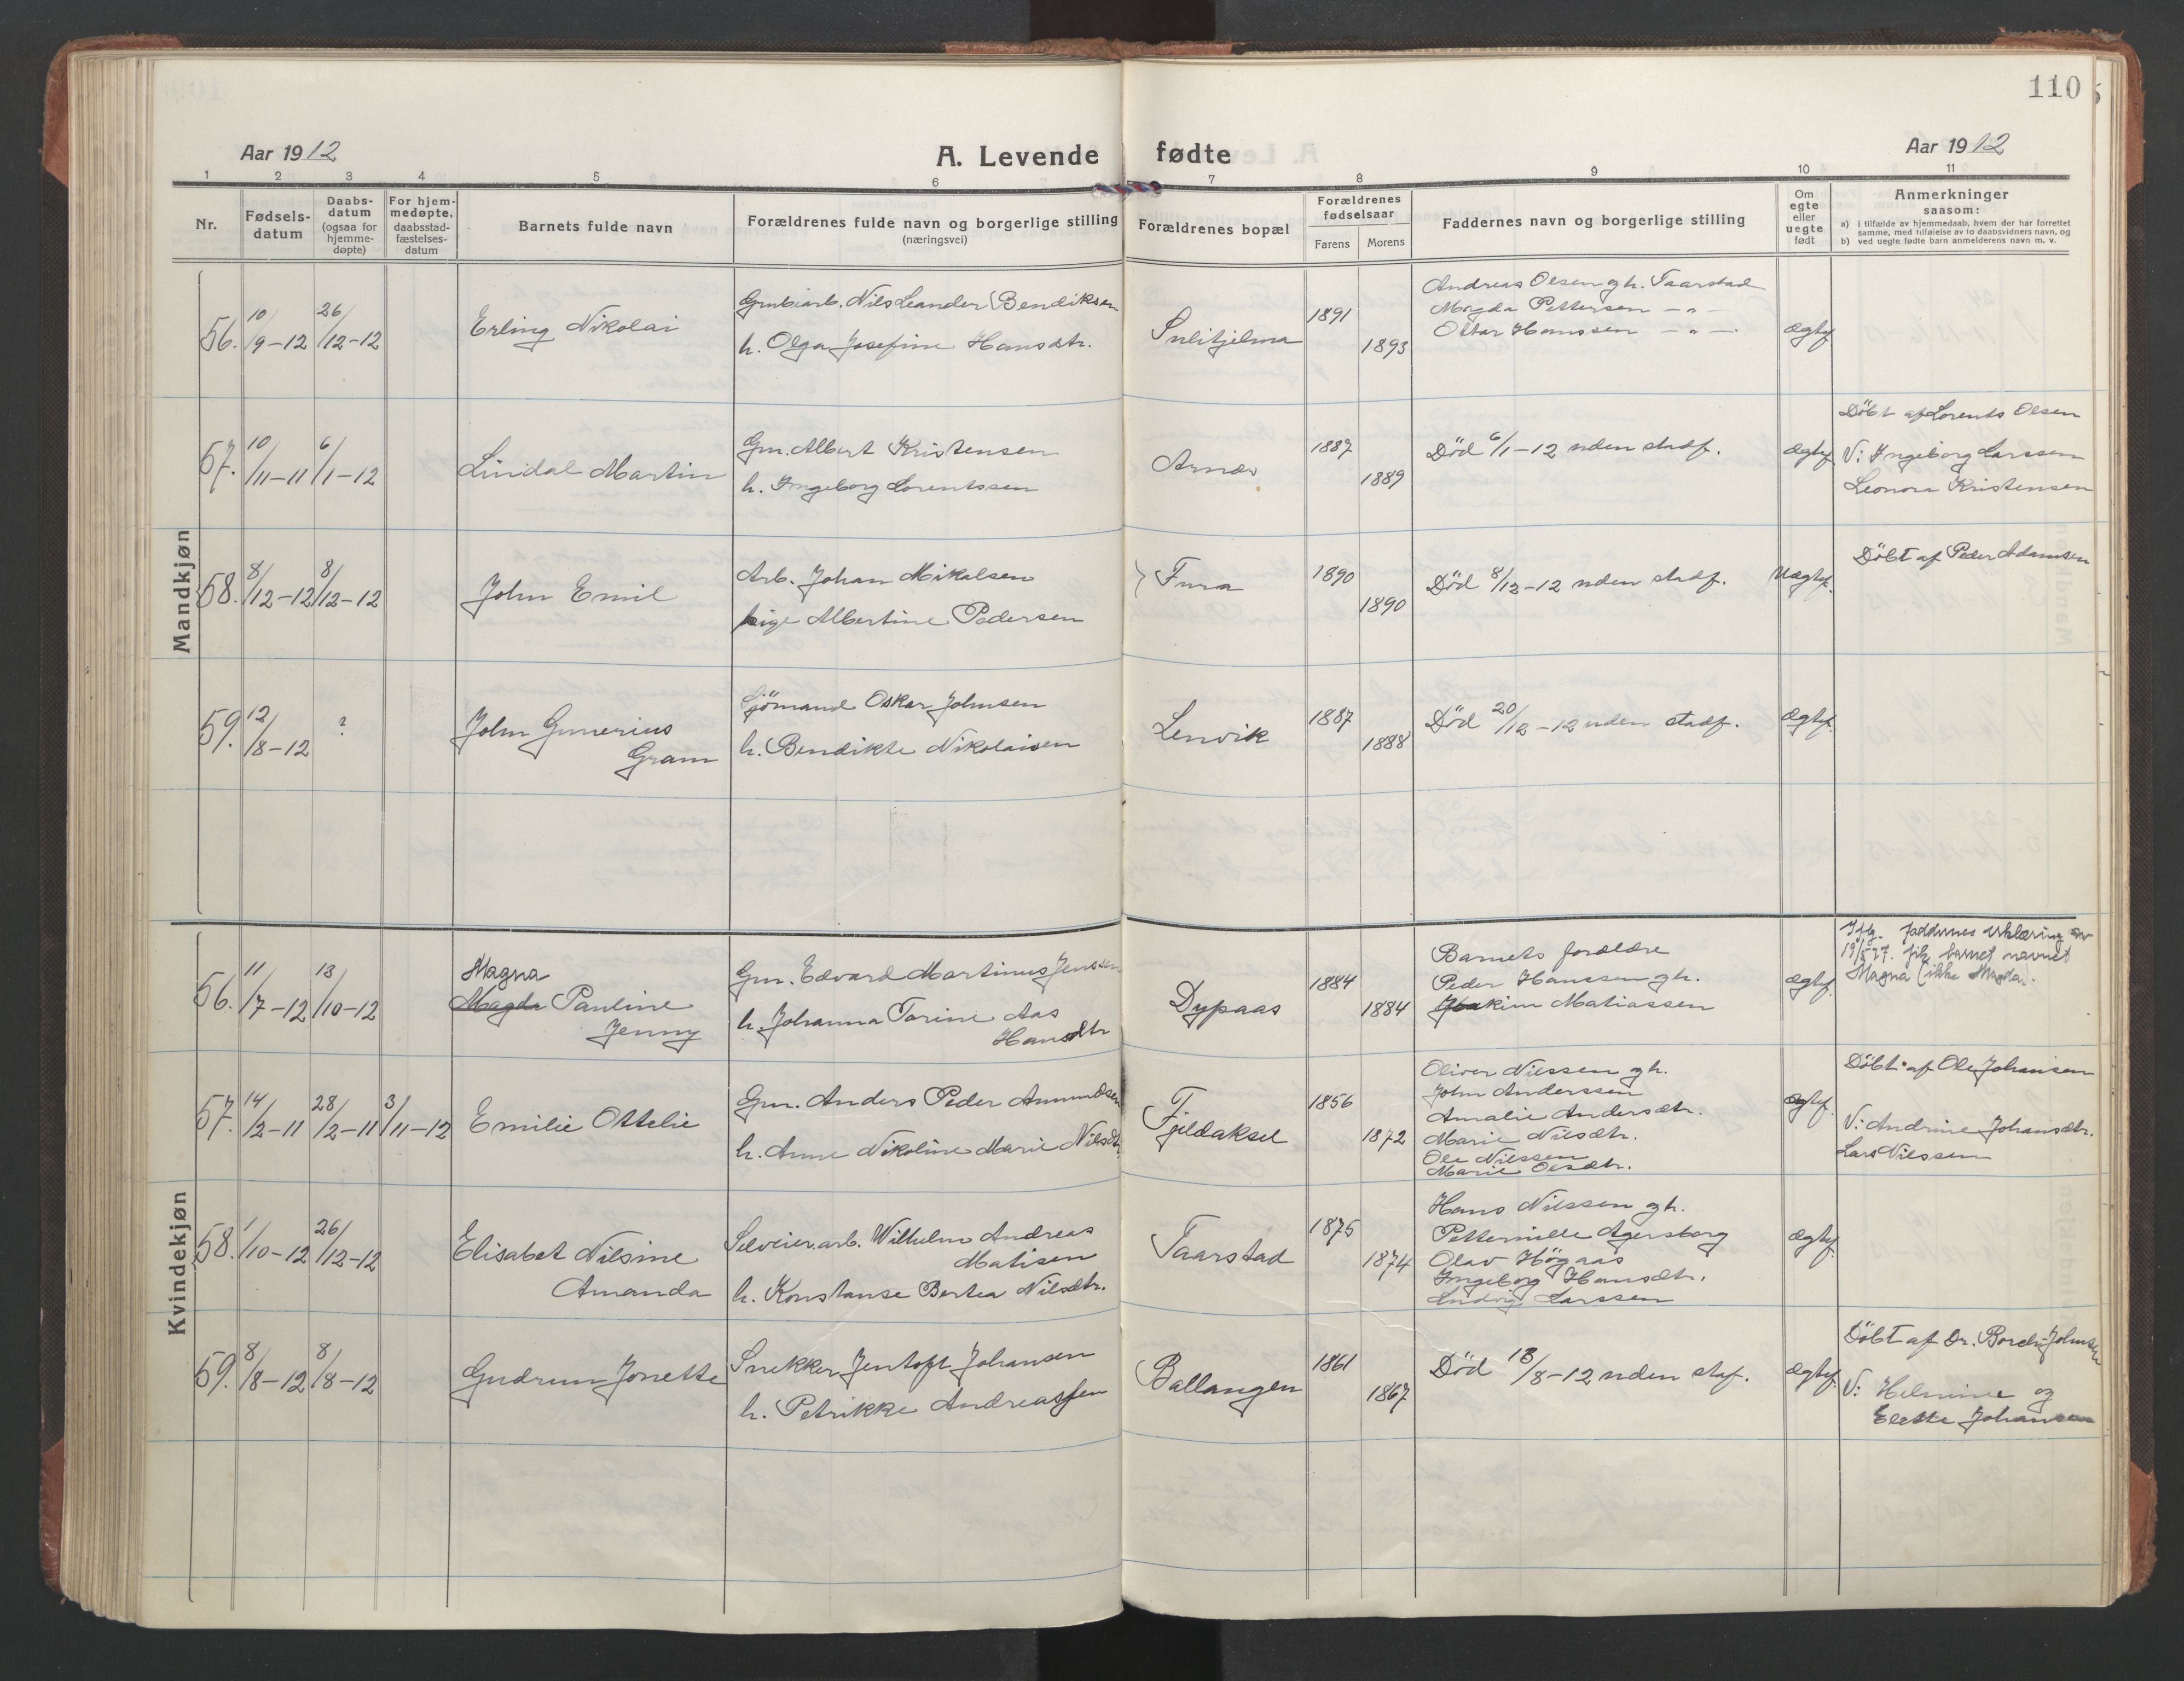 110
Aar 1912
A. Levende fødte
Aar 1912
1 2 3 4 5 6 7 8 9 10 11
Nr.
Fødsels-
datum
Daabs-
datum
(ogsaa for
hjemme-
døpte)
For hjem-
medøpte,
daabsstad-
fæstelses-
datum
Barnets fulde navn
Forældrenes fulde navn og borgerlige stilling
(næringsvei)
Forældrenes bopæl
Forældrenes
fødselsaar
Farens Morens
Faddernes navn og borgerlige stilling
Om
egte
eller
uegte
født
Anmerkninger
saasom:
a) I tilfælde av hjemmedaab, hvem der har forrettet
samme, med tilføielse av to daabsvidners navn, og
b) ved uegte fødte barn anmelderens navn m. v.
Mandkjøn
56. 10/9-12 26/12-12
Erling Nikolai
Grubearb. Nils Leander Bendiksen
h. Olga Josefine Hansdtr.
Sulitjelma
1891
1893
Andreas Olsen gh. Taarstad
Magda Pettersen — " —
Ottar Hanssen — " —
ægtef.
57. 10/11-11 6/1-12
Lindal Martin
Gm. Albert Kristensen
h. Ingeborg Lorentssen
Arnes
1887
1889
Död 6/1-12 uden stadf.
ægtef.
Döbt af Lorents Olsen
V: Ingeborg Larssen
Leonora Kristensen
58. 8/12-12 8/12-12
John Emil
Arb. Johan Mikalsen
pige Albertine Pedersen
Fura
1890
1890
Död 8/12-12 uden stadf.
Uægtef.
Döbt af Peder Adamsen
59. 12/8-12 ?
John Gunerius
Gram
Sjömand Oskar Johnsen
h. Bendikte Nikolaisen
Lenvik
1887
1888
Död 20/12-12 uden stadf.
ægtef.
Kvindekjøn
56. 11/7-12 13/10-12
Magna
Magda Pauline
Jenny
Gm. Edvard Martinus Jenssen
h. Johanna Torine Aas
Hansdtr
Dypaas
1884
1884
Barnets forældre
Peder Hanssen gh.
Joakim Matiassen
ægtef.
Iflg. faddernes erklæring av
19/5 27. fik barnet navnet
Magna (ikke Magda.
57. 14/2-11 28/2-11 3/11-12
Emilie Ottelie
Gm. Anders Peder Amundsen
h. Anne Nikoline Marie Nilsdtr.
Fjeldaksel
1856
1872
Oliver Nilssen gh.
John Anderssen
Amalie Andersdtr.
Marie Nilsdtr.
Ole Nilssen
Marie Olsdtr.
ægtef.
Döbt af Ole Johansen
V: Andrine Johansdtr.
Lars Nilssen
58. 1/10-12 26/12-12
Elisabet Nilsine
Amanda
Selveierarb. Wilhelm Andreas
Matisen
h. Konstanse Bertea Nilsdtr.
Taarstad
1875
1874
Hans Nilssen gh.
Petternille Agersborg
Olav Høgaas
Ingeborg Hansdtr.
Ludvig Larssen
ægtef.
59. 8/8-12 8/8-12
Gudrun Jonette
Snekker Jentoft Johansen
h. Petrikke Andreassen
Ballangen
1861
1867
Död 13/8-12 uden staf.
ægtef.
Döbt af Dr. Borch-Johnsen
V: Helmine og
Elette Johansen